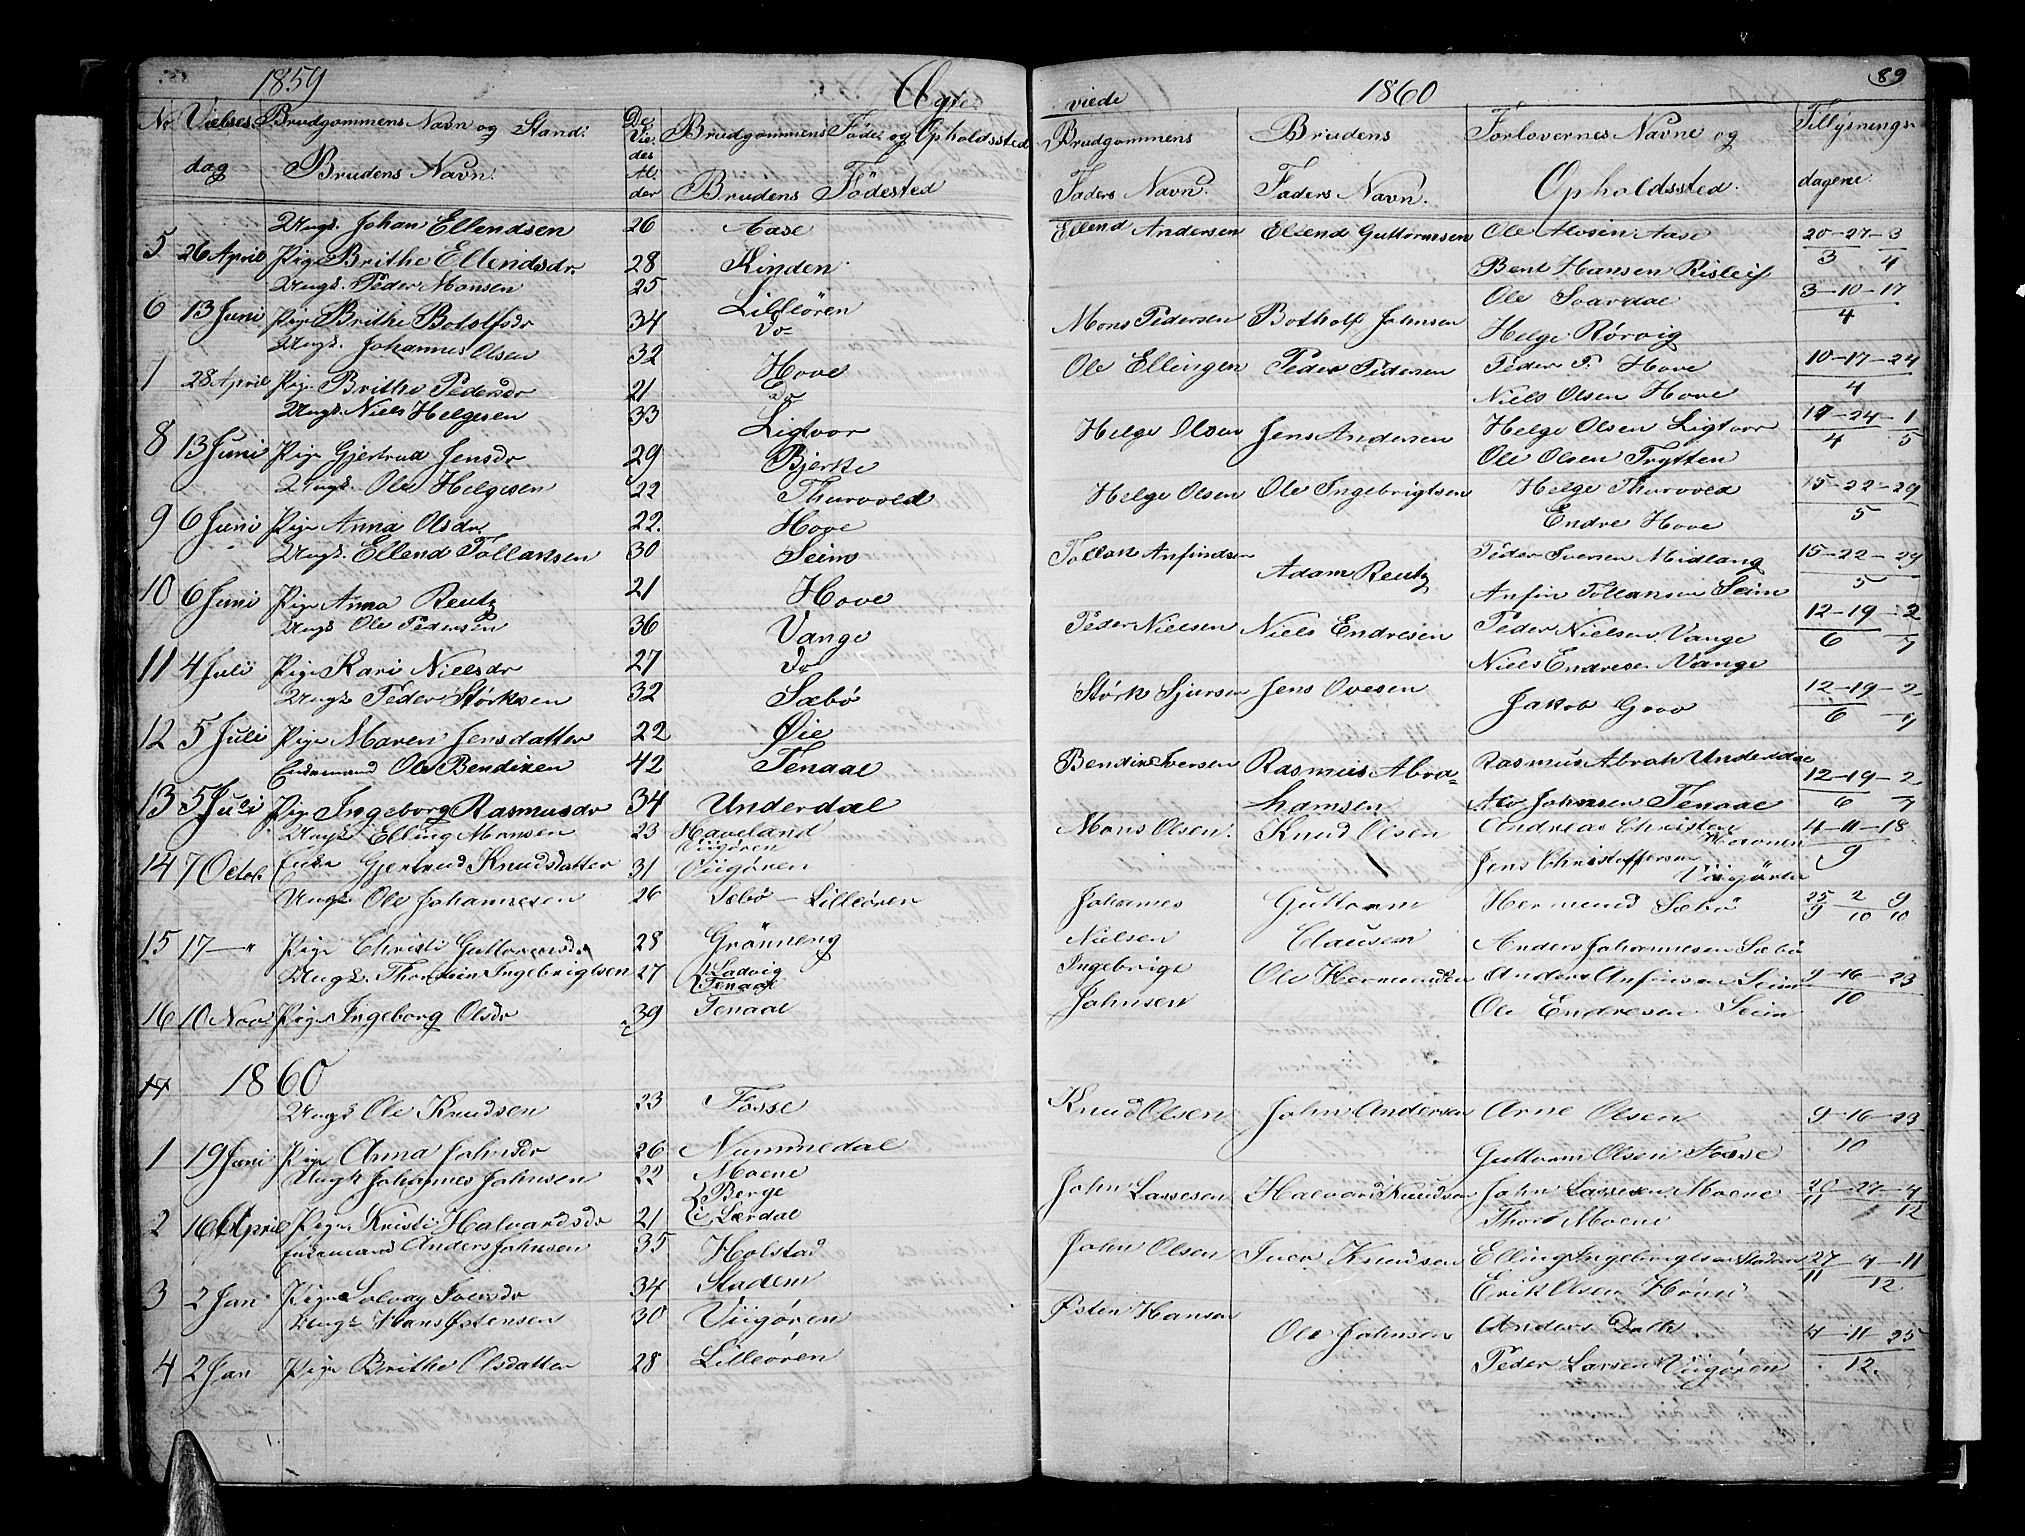 1859 Ægte-
No Vielses- Brudgommens Navn og Stand De Vie- Brudgommens Føde og Opholdssted
dag Brudens Navn. des Al- der Brudens Fødested
Ungk. Johan Ellendsen 26 Aase
5 26 April Pige Brithe Ellendsdr 28 Kinden
Ungk. Peder Monsen 25 Lilleören
6 13 Juni Pige Brithe Botolfsdr 34 Do
Ungk. Johannes Olsen 32 Hove
7 28 April Pige Brithe Pedersdr 21 Do
Ungk. Niels Helgesen 33 Ligtvor
8 13 Juni Pige Gjertrud Jensdr 29 Bjerke
Ungk. Ole Helgesen 22 Thurvold
9 6 Juni Pige Anna Olsdr 22. Hove
Ungk. Ellend Tollansen 30 Seim
10 6 Juni Pige Anna Reutz 21 Hove
Ungk Ole Pedersen 36 Vange
11 4 Juli Pige Kari Nielsdr 27 Do
Ungk Peder Størksen 32 Sæbö
12 5 Juli Pige Maren Jensdatter 22 Øie
Enkemand Ole Bendixen 42 Tenaal
13 5 Juli Pige Ingeborg Rasmusdr 34 Underdal
Ungk Elling Monsen 23 Haveland Viigören
14 7 Octob. Enke Gjertrud Knudsdatter 31 Viigören
Ungk Ole Johannesen 26 Sæbö - Lilleören
15 17 - " Pige Christi Guttormsdr 28 Grönneng
Ungk. Thorstein Ingebrigtsen 27 Ladvig Tenaal
16 10 Nov Pige Ingeborg Olsdr 39 Tenaal
17 1860
Ungk Ole Knudsen 23 Fosse
1 19 Juni Pige Anna Johnsdr 26 Nummedal
Ungk Johannes Johnsen 22 Moene Berge
2 16 April Pige Kristi Halvardsdr 21 i Lærdal
Enkemand Anders Johnsen 35 Holstad
3 2 Jan Pige Solvey Iversdr 34 Stadem
Ungk Hans Østensen 30 Viigören
4 2 Jan Pige Brithe Olsdatter 28 Lilleören
viede 1860 89
Brudgommens Brudens Forlovernes Navne og Tillysnings-
Faders Navn. Faders Navn. Opholdssted. dagene.
Ellend Andersen Ellend Guttormsen Ole Aase 20-27-3
Bent Hansen 3 4
Ole 3-10-17
Mons Pedersen Botholf Johnsen Helge Rørvig 4
Ole Ellingen Peder Pedersen Peder P. Hove 10-17-24
Niels Olsen Hove 4
Helge Olsen Jens Andersen Helge Olsen Ligtvor 17-24-1
Ole Olsen Trytten 4 5
Helge Olsen Ole Ingebrigtsen Helge Thurvold 15-22-29
Endre Hove 5
Tollak Anfindsen Adam Reutz Peder Iversen Midlang 15-22-29
Anfin Tollansen Seim 5
Peder Nielsen Niels Endresen Peder Nielsen Vange 12-19-2
Niels Endresen Vange 6 7
Størk Sjursen Jens Ovesen Jakob Grov 12-19-2
6 7
Bendix Iversen Rasmus Abra- Rasmus Abrah Underdal 12-19-2
hamsen Johnsen Tenaal 6 7
Mons Olsen. Knud Olsen Andreas Christen 4-11-18
Jens Christoffersen Viigören 9
Johannes Guttorm Hermund Sæbö 25 2 9
Nielsen Clausen Anders Johannesen Sæbö 9 10 10
Ingebrigt Ole Hermundsen Anders Anfinsen Seim 9-16-23
Johnsen Ole Endresen Seim 10
Knud Olsen John Andersen Arne Olsen 9-16-23
Guttorm Olsen Fosse 10
John Lassesen Halvard Knudsen John Lassesen Moene 20-27-4
Thor Moene 11 12
John Olsen Iver Knudsen Elling Ingebrigtsen Stadem 27-4-11
Erik Olsen 11 12
Østen Hansen Ole Johnsen Anders Dalk 4-11-25
Peder Larsen Viigören 12